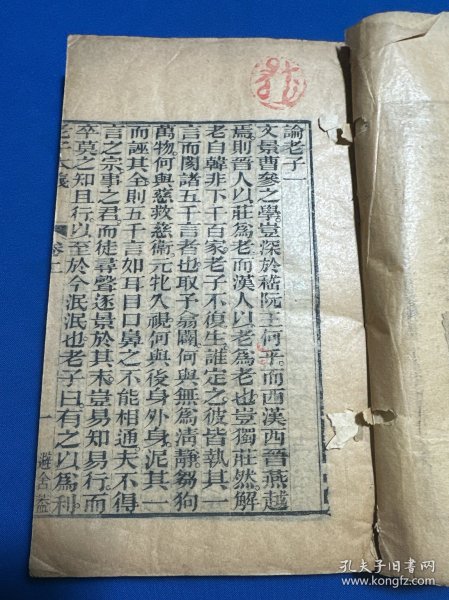 論老子
文景曹參之學豈深於嵇阮王何乎而西漢西晉燕越
焉則晉人以莊為老而漢人以老為老也豈獨莊然解
老自韓非下千百家老子不復生誰定之彼皆執其一
言而閡諸五千言者也取予翕闢何與無為清靜芻狗
萬物何與慈救慈衛元牝久視何與後身外身泥其一
而誣其全則五千言如耳目口鼻之不能相通夫不得
言之宗事之君而徒尋聲逐景於其末豈易知易行而
卒莫之知且行以至於今泯泯也老子曰有之以為利
老子本義
卷上
一
避舍蓋
孔夫子旧书网
www.kongfz.com